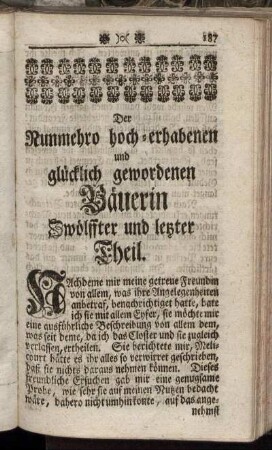 187
Der
Nunmehro hoch-erhabenen
und
glücklich gewordenen
Bäuerin
Zwölffter und letzter
Theil.
NAchdeme mir meine getreue Freundin
von allem, was ihre Angelegenheiten
anbetraf, benachrichtiget hatte, batte
ich sie mit allem Eyfer, sie möchte mir
eine ausführliche Beschreibung von allem dem,
was seit deme, da ich das Closter und sie zugleich
verlassen, ertheilen. Sie berichtete mir, Meli-
court hätte es ihr alles so verwirret geschrieben,
daß sie nichts daraus nehmen können. Dieses
freundliche Ersuchen gab mir eine genugsame
Probe, wie sehr sie auf meinen Nutzen bedacht
wäre, dahero nicht umhin konte, auf das ange-
nehmst